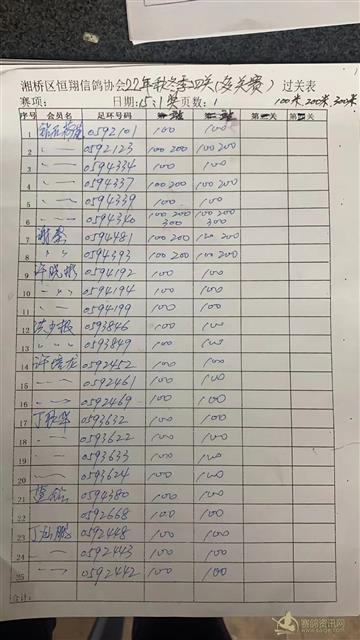 湘桥区恒翔信鸽协会22年秋冬季四关(多关赛)过关表
赛项: 日期:15:1 页数:1 100米,200米,300米
序号 会员名 足环号码 第一关 第二关 第三关 第四关
1 0592101 100 100
2 〃 0592123 100 200 100 200
3 〃 0594334 100 100
4 〃 0594337 100 200 100 200
5 〃 0594339 100 100
6 〃 0594340 100 200 300 100 200 300
7 谢泰 0594481 100 200 100 200
8 〃 〃 0594393 100 200 100 200
9 许晓彬 0594192 100 100
10 〃 〃 〃 0594194 100 100
11 〃 0594199 100 100
12 0593846 100 100
13 〃 〃 〃 0593849 100 100
14 许培龙 0592452 100 100
15 〃 0592461 100 100
16 〃 0592469 100 100
17 0593632 100 100
18 〃 0593622 100 100
19 〃 0593633 100 100
20 〃 0593624 100 100
21 0594380 100 100
22 0592668 100 100
23 0592448 100 100
24 〃 0592443 100 100
25 〃 0592442 100 100
合计:
赛鸽资讯网